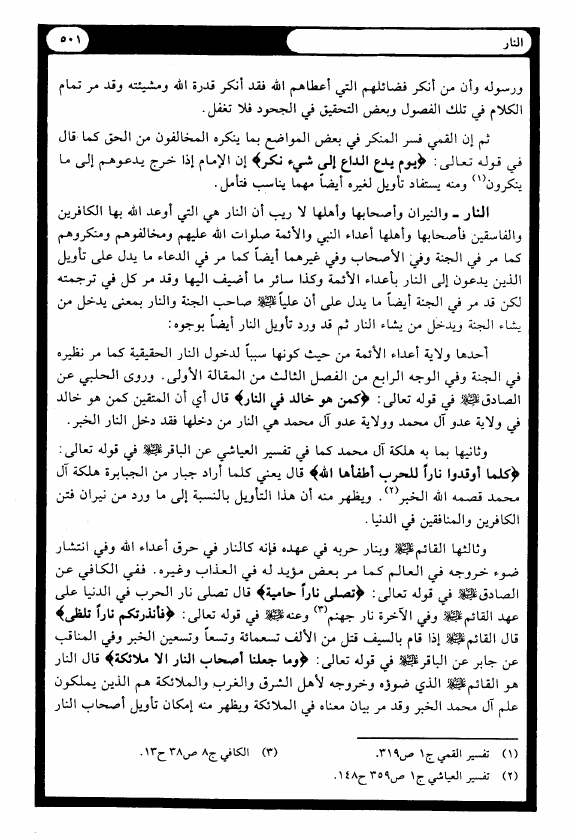 النار
٥٠١
ورسوله وأن من أنكر فضائلهم التي أعطاهم الله فقد أنكر قدرة الله ومشيئته وقد مر تمام
الكلام في تلك الفصول وبعض التحقيق في الجحود فلا تغفل.
ثم إن القمي فسر المنكر في بعض المواضع بما ينكره المخالفون من الحق كما قال
في قوله تعالى: ﴿يوم يدع الداع إلى شيء نكر﴾ إن الإمام إذا خرج يدعوهم إلى ما
ينكرون(١) ومنه يستفاد تأويل لغيره أيضاً مهما يناسب فتأمل.
النار ـ والنيران وأصحابها وأهلها لا ريب أن النار هي التي أوعد الله بها الكافرين
والفاسقين فأصحابها وأهلها أعداء النبي والأئمة صلوات الله عليهم ومخالفوهم ومنكروهم
كما مر في الجنة وفي الأصحاب وفي غيرهما أيضاً كما مر في الدعاء ما يدل على تأويل
الذين يدعون إلى النار بأعداء الأئمة وكذا سائر ما أضيف اليها وقد مر كل في ترجمته
لكن قد مر في الجنة أيضاً ما يدل على أن علياً عليه السلام صاحب الجنة والنار بمعنى يدخل من
يشاء الجنة ويدخل من يشاء النار ثم قد ورد تأويل النار أيضاً بوجوه:
أحدها ولاية أعداء الأئمة من حيث كونها سبباً لدخول النار الحقيقية كما مر نظيره
في الجنة وفي الوجه الرابع من الفصل الثالث من المقالة الأولى. وروى الحلبي عن
الصادق عليه السلام في قوله تعالى: ﴿كمن هو خالد في النار﴾ قال أي أن المتقين كمن هو خالد
في ولاية عدو آل محمد وولاية عدو آل محمد هي النار من دخلها فقد دخل النار الخبر.
وثانيها بما به هلكة آل محمد كما في تفسير العياشي عن الباقر عليه السلام في قوله تعالى:
﴿كلما أوقدوا ناراً للحرب أطفأها الله﴾ قال يعني كلما أراد جبار من الجبابرة هلكة آل
محمد قصمه الله الخبر(٢). ويظهر منه أن هذا التأويل بالنسبة إلى ما ورد من نيران فتن
الكافرين والمنافقين في الدنيا.
وثالثها القائم عليه السلام وبنار حربه في عهده فإنه كالنار في حرق أعداء الله وفي انتشار
ضوء خروجه في العالم كما مر بعض مؤيد له في العذاب وغيره. ففي الكافي عن
الصادق عليه السلام في قوله تعالى: ﴿تصلى ناراً حامية﴾ قال تصلى نار الحرب في الدنيا على
عهد القائم عليه السلام وفي الآخرة نار جهنم(٣) وعنه عليه السلام في قوله تعالى: ﴿فأنذرتكم ناراً تلظى﴾
قال القائم عليه السلام إذا قام بالسيف قتل من الألف تسعمائة وتسعاً وتسعين الخبر وفي المناقب
عن جابر عن الباقر عليه السلام في قوله تعالى: ﴿وما جعلنا أصحاب النار الا ملائكة﴾ قال النار
هو القائم عليه السلام الذي ضوؤه وخروجه لأهل الشرق والغرب والملائكة هم الذين يملكون
علم آل محمد الخبر وقد مر بيان معناه في الملائكة ويظهر منه إمكان تأويل أصحاب النار
(١) تفسير القمي ج١ ص٣١٩.
(٢) تفسير العياشي ج١ ص٣٥٩ ح١٤٨.
(٣) الكافي ج٨ ص٣٨ ح١٣.